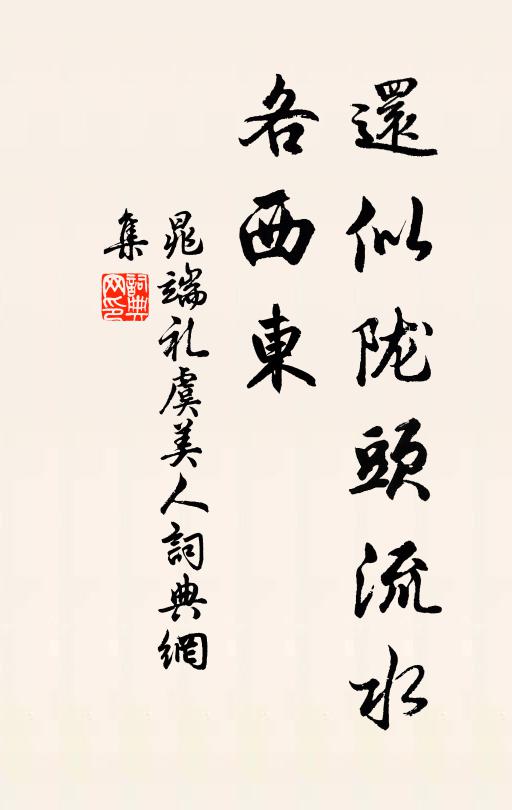 還似陇頭流水
各西東
晁端礼虞美人詞典網
集
詞典
网印